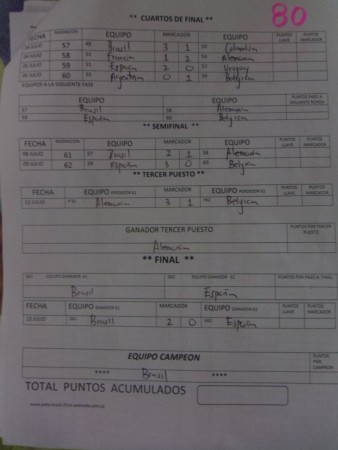 80
** CUARTOS DE FINAL **
FECHA EQUIPO MARCADOR EQUIPO PUNTOS LLAVE PUNTOS MARCADOR
57 Brasil 3 1 Colombia
58 Francia 1 2 Alemania
59 España 2 0 Uruguay
60 Argentina 0 1 Belgica
EQUIPOS A LA SIGUIENTE FASE
EQUIPO EQUIPO
57 Brasil 58 Alemania
59 España 60 Belgica
** SEMIFINAL **
FECHA EQUIPO MARCADOR EQUIPO PUNTOS LLAVE PUNTOS MARCADOR
08 JULIO 61 57 Brasil 2 1 58 Alemania
09 JULIO 62 59 España 3 0 60 Belgica
** TERCER PUESTO **
FECHA EQUIPO PERDEDOR 61 MARCADOR EQUIPO PERDEDOR 62 PUNTOS LLAVE PUNTOS MARCADOR
12 JULIO Alemania 3 1 Belgica
GANADOR TERCER PUESTO PUNTOS POR TERCER PUESTO
Alemania
** FINAL **
EQUIPO GANADOR 61 EQUIPO GANADOR 62 PUNTOS POR PASO A FINAL
Brasil España
FECHA EQUIPO GANADOR 61 MARCADOR EQUIPO GANADOR 62 PUNTOS LLAVE PUNTOS MARCADOR
13 JULIO Brasil 2 0 España
EQUIPO CAMPEON PUNTOS POR CAMPEON
**** Brasil ****
TOTAL PUNTOS ACUMULADOS